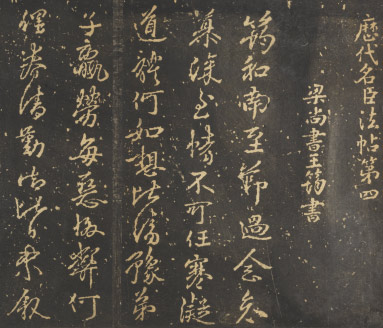 歷代名臣法帖第四
梁尚書王筠書
筠和南至節過念哀
慕深至情不可任寒凝
道體何如想比清豫弟
子羸勞每惡極弊何
清勤未敘